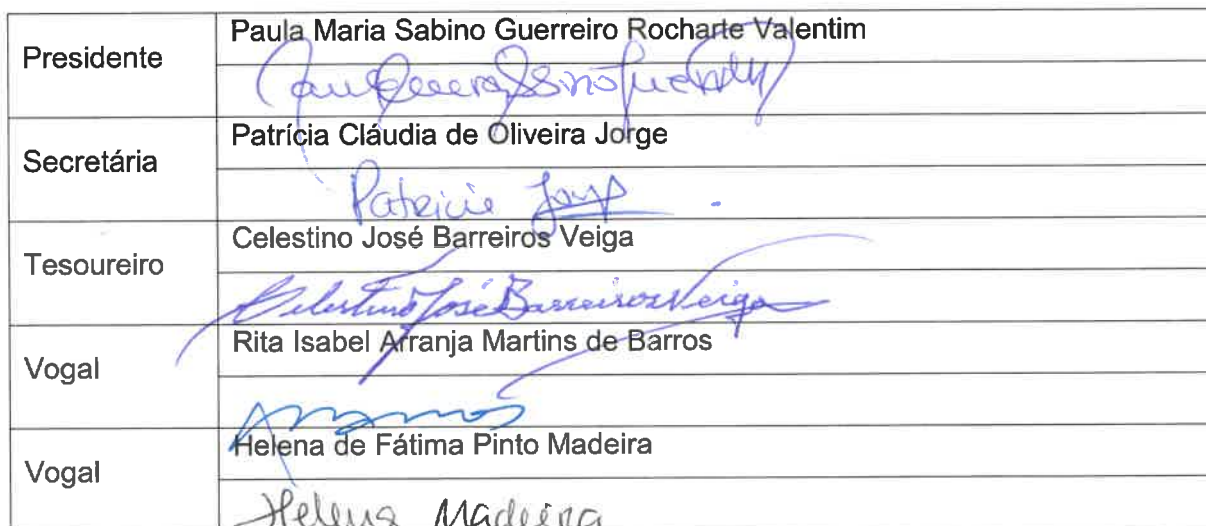 Presidente
Paula Maria Sabino Guerreiro Rocharte Valentim
Secretária
Patrícia Cláudia de Oliveira Jorge
Patricia Jorge
Tesoureiro
Celestino José Barreiros Veiga
Celestino José Barreiros Veiga
Vogal
Rita Isabel Arranja Martins de Barros
Vogal
Helena de Fátima Pinto Madeira
Helena Madeira